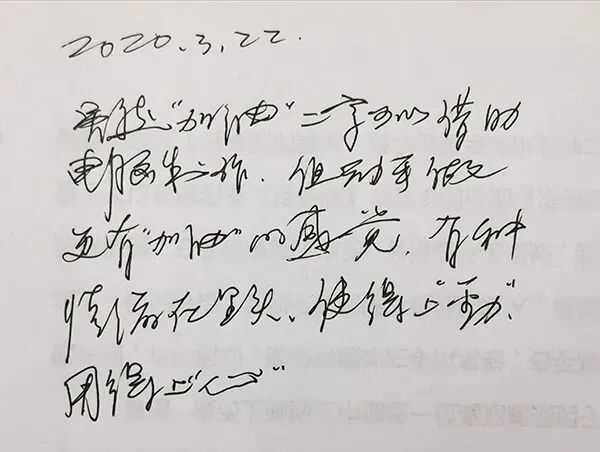 2020.3.22.
虽然“加油”二字可以借助
电脑制作、但动手做又
更有“加油”的感觉、有种
情绪在里头、使得上“劲”、
用得上“心”